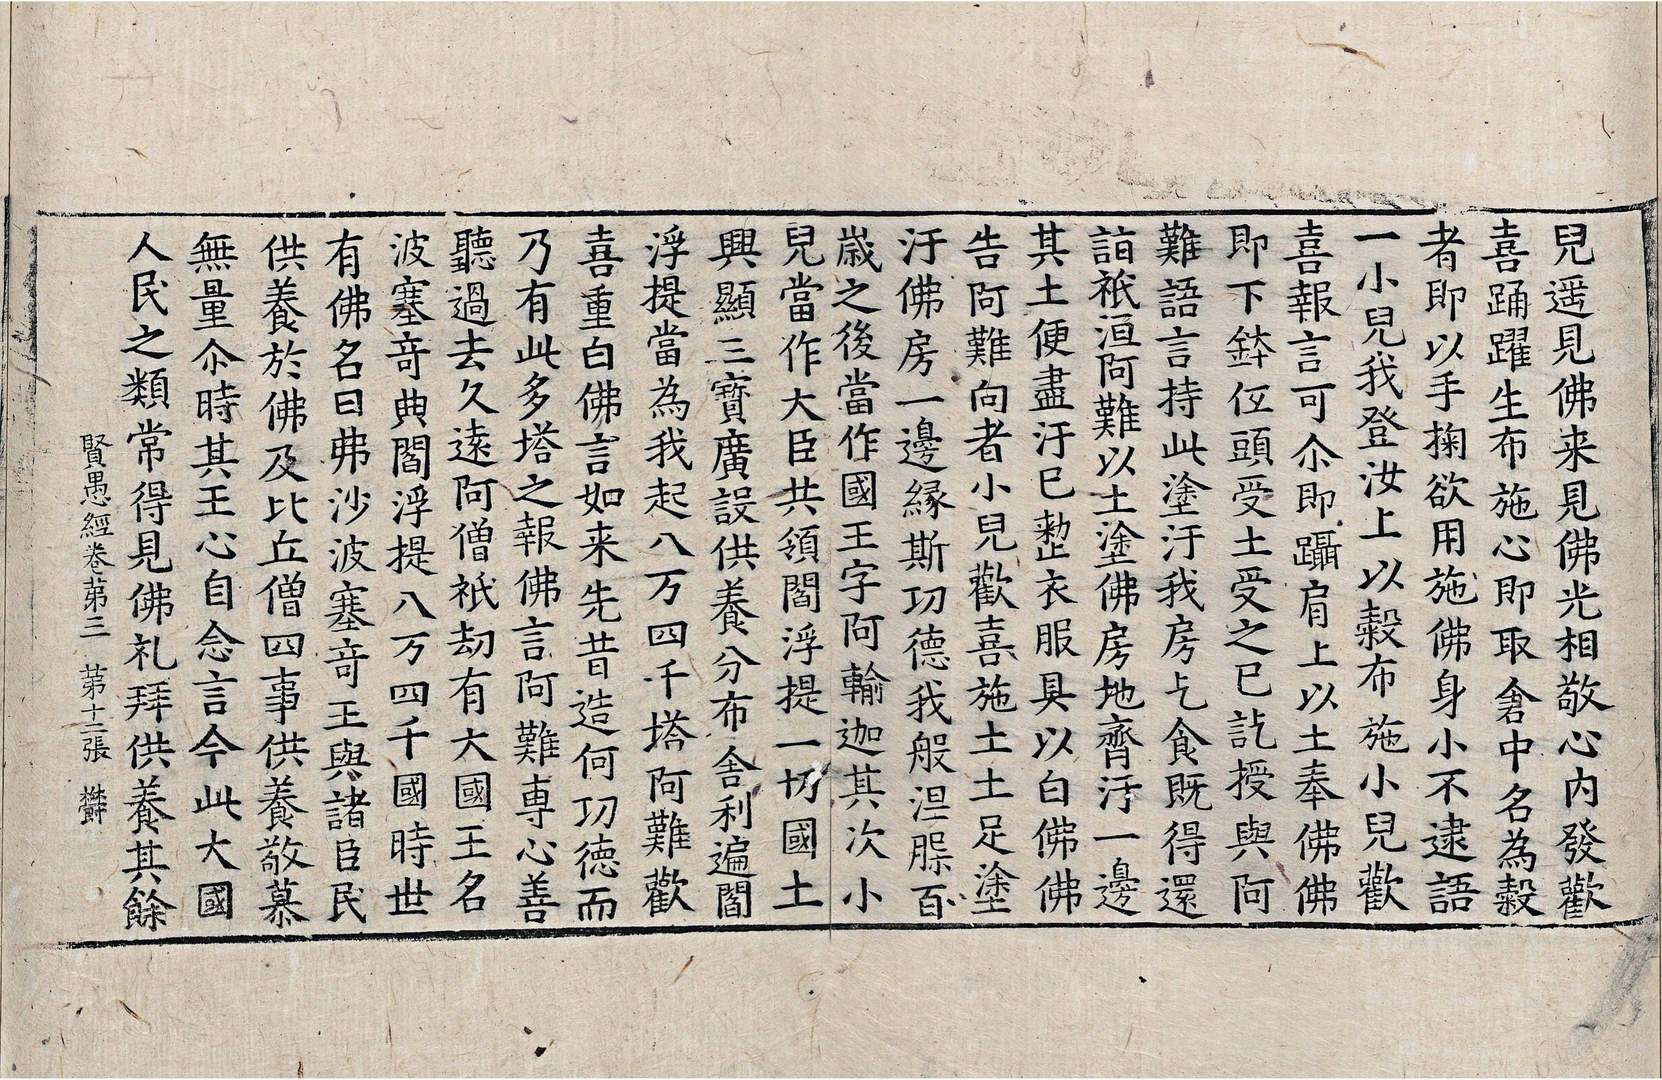 兒遥見佛来見佛光相敬心内發歡
喜踊躍生布施心即取倉中名為穀
者即以手掬欲用施佛身小不逮語
一小兒我登汝上以穀布施小兒歡
喜報言可尒即躡肩上以土奉佛佛
即下鉢伍頭受土受之已訖授與阿
難語言持此塗汙我房乞食既得還
詣祇洹阿難以土塗佛房地齊汙一邊
其土便盡汙已整衣服具以白佛佛
告阿難向者小兒歡喜施土土足塗
汙佛房一邊緣斯功德我般涅槃百
歲之後當作國王字阿輸迦其次小
兒當作大臣共領閻浮提一切國土
興顯三寶廣設供養分布舍利遍閻
浮提當為我起八万四千塔阿難歡
喜重白佛言如来先昔造何功德而
乃有此多塔之報佛言阿難專心善
聽過去久遠阿僧祇劫有大國王名
波塞奇典閻浮提八万四千國時世
有佛名曰弗沙波塞奇王與諸臣民
供養於佛及比丘僧四事供養敬慕
無量尒時其王心自念言今此大國
人民之類常得見佛礼拜供養其餘
賢愚經卷苐三 苐十二張 欝